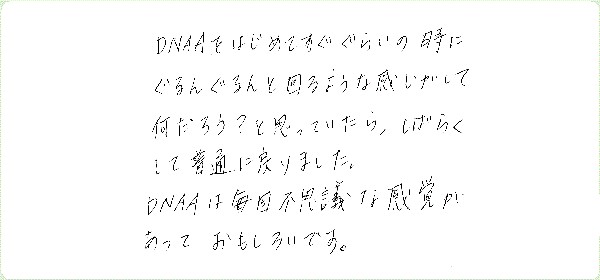 DNAAをはじめてすぐぐらいの時に
ぐるんぐるんと回るような感じがして
何だろう？と思っていたら、しばらく
して普通に戻りました。
DNAAは毎回不思議な感覚が
あって おもしろいです。